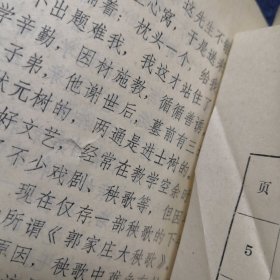 心窝，
着：枕头一个，
不出题难我，我这才站住了
学辛勤，因材施教，循循善诱
子弟，他谢世后，墓前有三
状元树的，两通是进士树的，
好文艺，经常在教学空余时
不少戏剧、秧歌等，但
现在仅存一部秧歌的下
所谓《郭家庄大秧歌》
原因，秧歌中
页
5